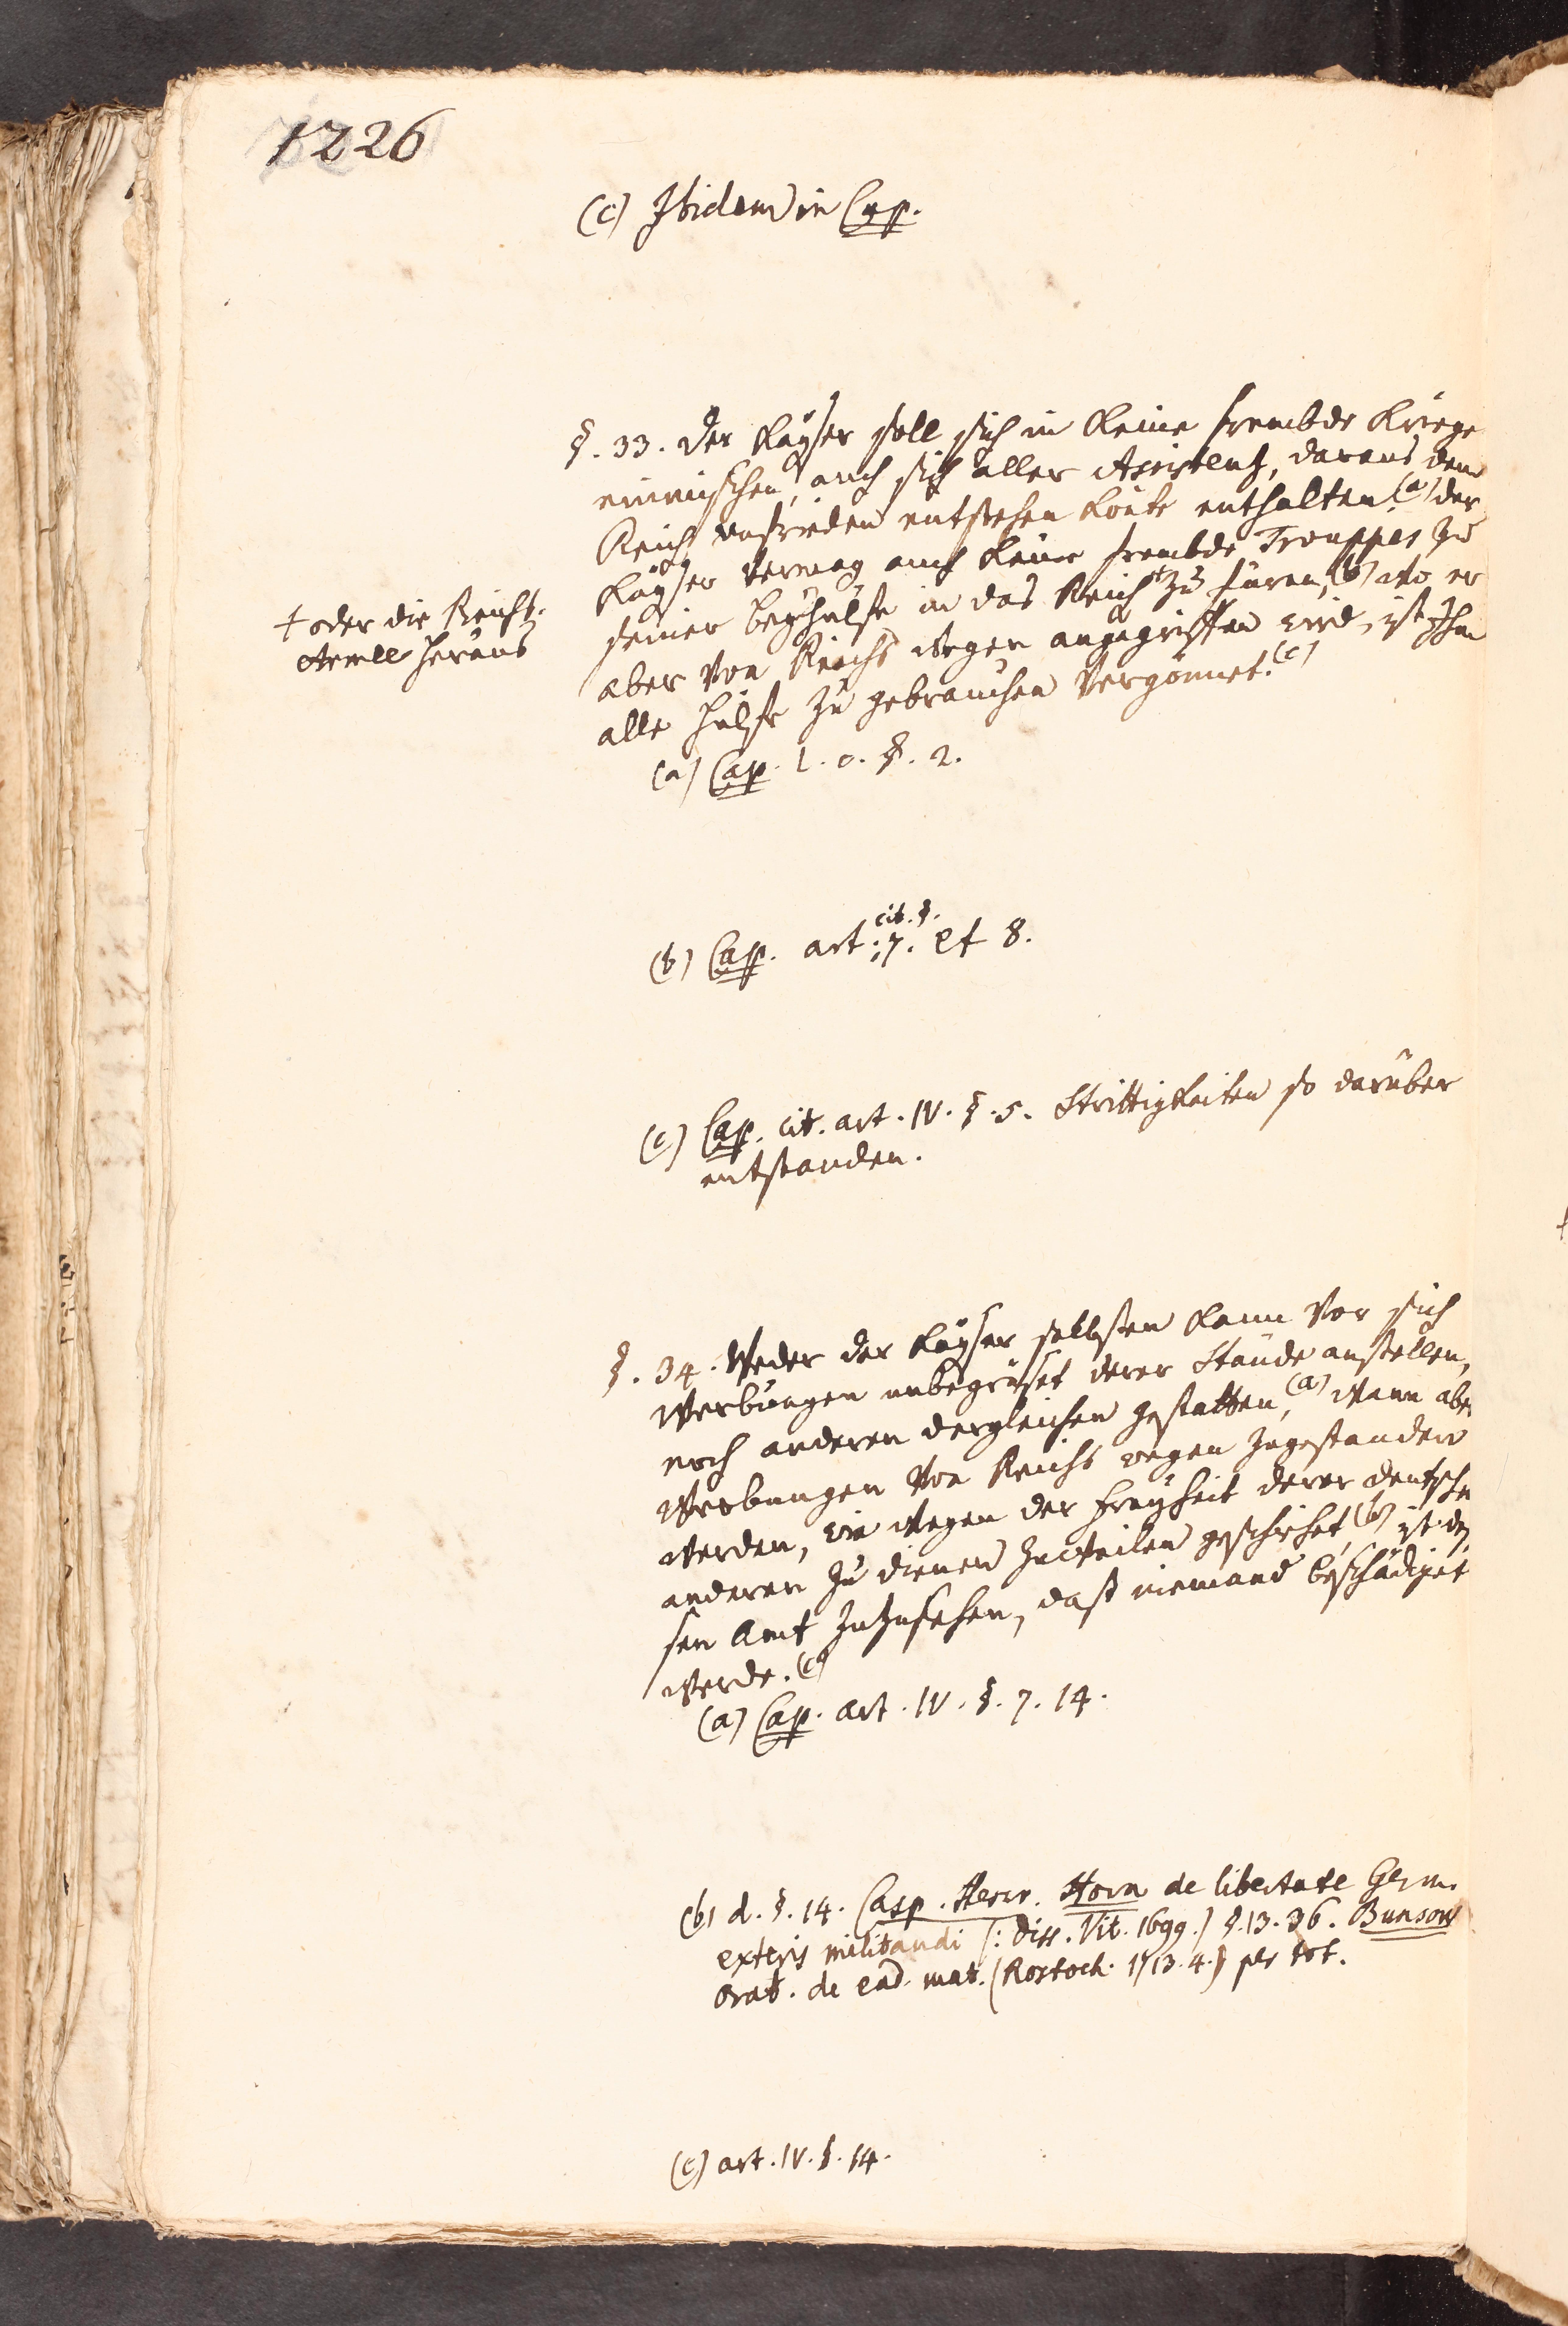 1226
(c) Ibidem in Cap.
§. 33. Der Kayser soll sich in keine frembde Kriege
einmischen, auch sich aller Assistentz, daraus dem
Reich unfrieden entstehen könte enthalten.(a) der
Kayser vermag auch keine frembde Trouppes zu
seiner beyhülfe in das Reich † zu füren,(b) wo er
† oder die Reichs-
Armee heraus
aber von Reichs wegen angegriffen wird, ist Ihm
alle hülfe zu gebrauchen vergönnet.(c)
(a) Cap. l. c. §. 2.
cit. §.
(b) Cap. art. 7. et 8.
(c) Cap. cit. art. IV. §. 5. Strittigkeiten so darüber
entstanden.
§. 34. Weder der Kayser selbsten kann vor sich
Werbungen unbegrüset derer Stände anstellen,
noch anderen dergleichen gestatten,(a) wann aber
Werbungen von Reichs wegen zugestanden
werden, wie wegen der Freyheit derer Deutschen
anderen zu dienen zuweilen geschiehet,(b) ist des
sen Amt zuzusehen, daß niemand beschädiget
werde.(c)
(a) Cap. art. IV. §. 7. 14.
(b) d. §. 14. Casp. Henr. Horn de libertate Germ.
exteris militandi (: Diss. Vit. 1699.) §. 13. 36. Bunsow
Orat. de ead. mat. (Rostoch. 1713. 4.) per tot.
(c) art. IV. §. 14.